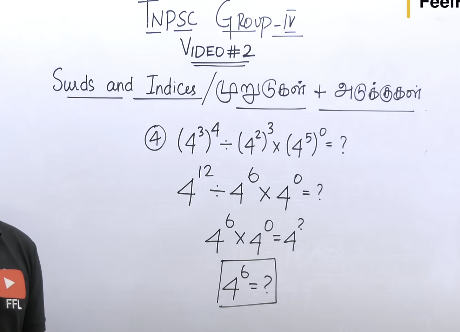 TNPSC GROUP-IV
VIDEO#2
Surds and Indices / முறுடுகள் + அடுக்குகள்
④ (4³)⁴ ÷ (4²)³ × (4⁵)⁰ = ?
4¹² ÷ 4⁶ × 4⁰ = ?
4⁶ × 4⁰ = 4^?
4⁶ = ?
FFL